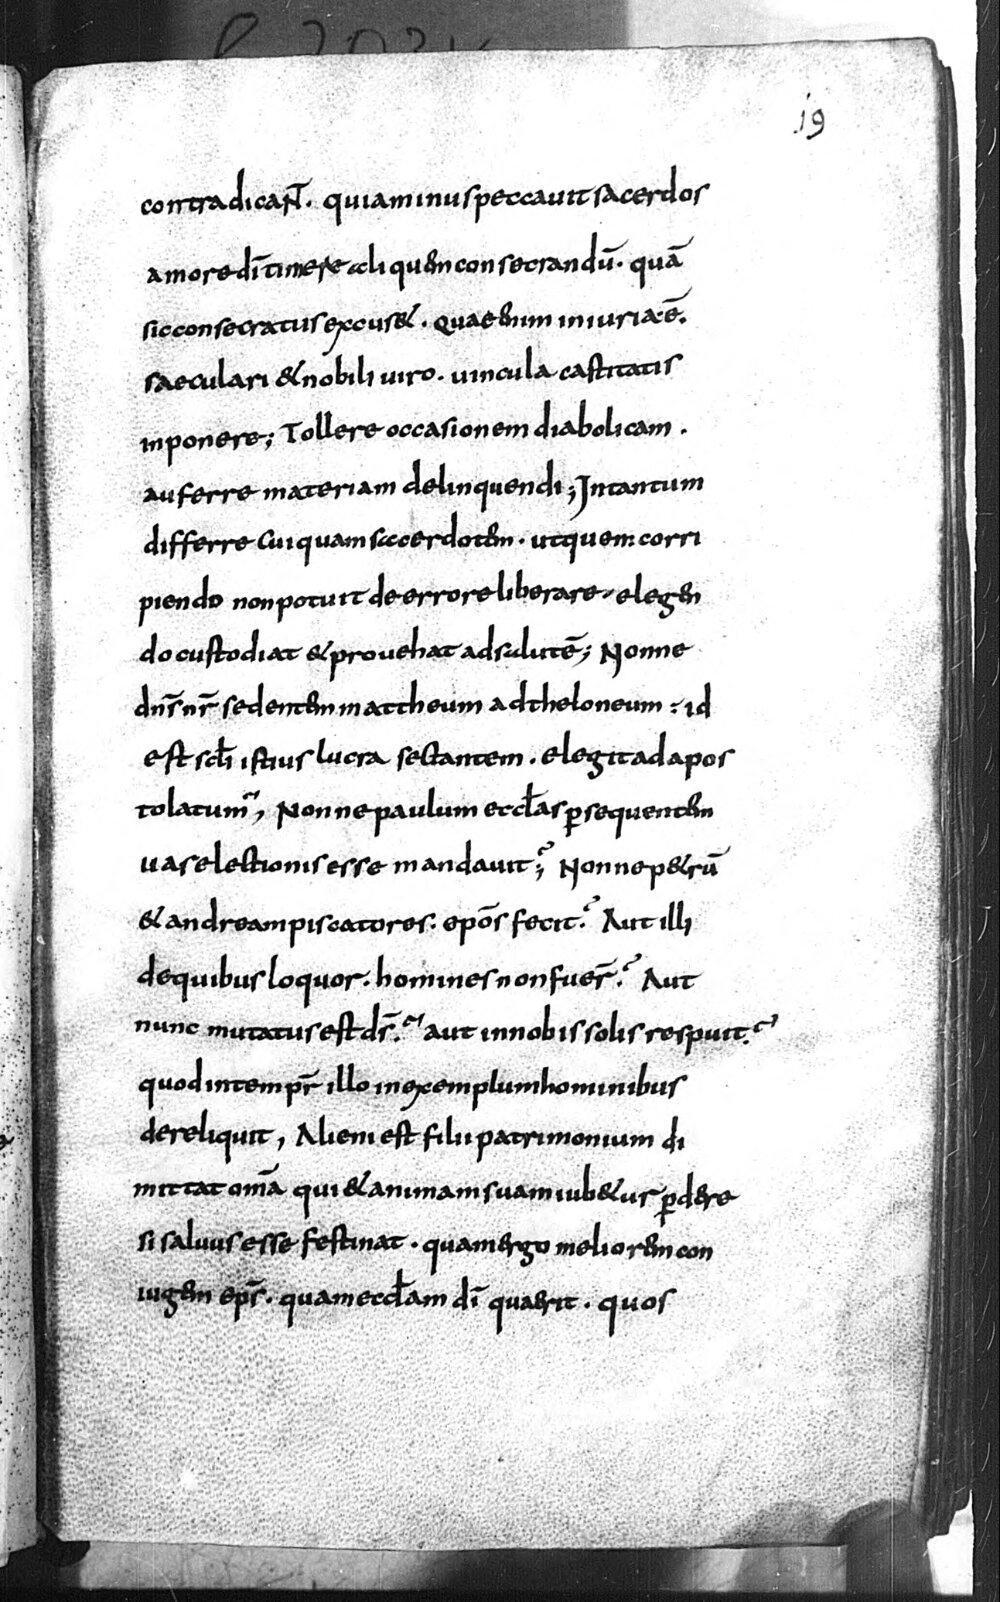 19
contradicaNT̄. quia minus peccauit sacerdos
amore dī timere aliquem consecrandū. quā
sic consecratus excus&. Quae enim iniuria ē.
saeculari & nobili uiro. uincula castitatis
inponere; Tollere occasionem diabolicam.
auferre materiam delinquendi; Intantum
differre cuiquam sacerdotem. ut quem corri
piendo non potuit de errore liberare. elegen
do custodiat & prouehat ad salutē; Nonne
dn̄s nr̄ sedentem mattheum ad theloneum: id
est scłi istius lucra sectantem. elegit ad apos
tolatum; Nonne paulum eccłas ꝑsequentem
uas electionis esse mandauit; Nonne p&rū
& andream piscatores. ep̄os fecit? Aut illi
de quibus loquor. homines non fuer̄? Aut
nunc mutatus est ds̄? aut in nobis solis respuit?
quod in tempr̄ illo in exemplum hominibus
dereliquit, Alieni est filii patrimonium di
mittat om̄a qui & animam suam iub&ur ꝑdere
si saluus esse festinat. quam ergo meliorem con
iugem ep̄s. quam eccłam dī quaerit. quos